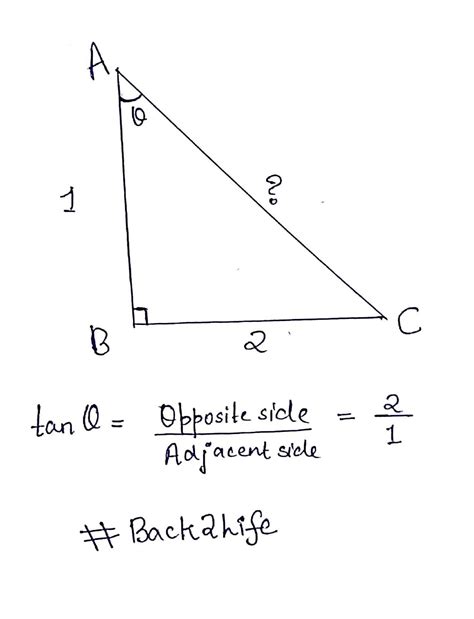 A
θ
1
?
B
2
C
tan θ = Opposite side / Adjacent side = 2 / 1
#Back2life